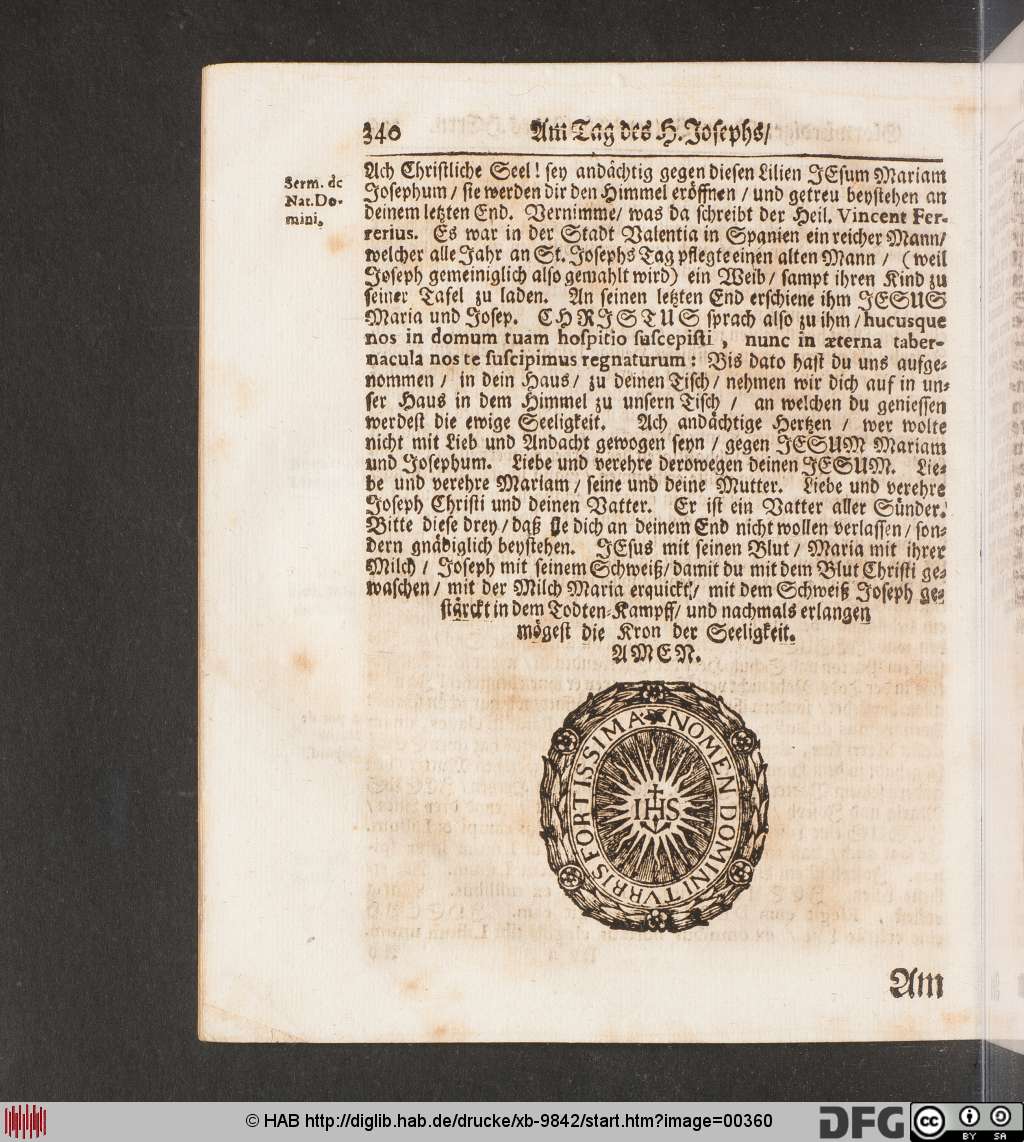 340 Am Tag des H. Josephs/
Serm. de
Nat. Do-
mini.
Ach Christliche Seel! sey andächtig gegen diesen Lilien JEsum Mariam
Josephum / sie werden dir den Himmel eröffnen / und getreu beystehen an
deinem letzten End. Vernimme/ was da schreibt der Heil. Vincent Fer-
rerius. Es war in der Stadt Valentia in Spanien ein reicher Mann/
welcher alle Jahr an St. Josephs Tag pflegte einen alten Mann / (weil
Joseph gemeiniglich also gemahlt wird) ein Weib / sampt ihren Kind zu
seiner Tafel zu laden. An seinen letzten End erschiene ihm JESUS
Maria und Josep. CHRISTUS sprach also zu ihm / hucusque
nos in domum tuam hospitio suscepisti , nunc in æterna taber-
nacula nos te suscipimus regnaturum : Bis dato hast du uns aufge-
nommen / in dein Haus / zu deinen Tisch / nehmen wir dich auf in un-
ser Haus in dem Himmel zu unsern Tisch / an welchen du geniessen
werdest die ewige Seeligkeit. Ach andächtige Hertzen / wer wolte
nicht mit Lieb und Andacht gewogen seyn / gegen JESUM Mariam
und Josephum. Liebe und verehre derowegen deinen JESUM. Lie-
be und verehre Mariam / seine und deine Mutter. Liebe und verehre
Joseph Christi und deinen Vatter. Er ist ein Vatter aller Sünder.
Bitte diese drey / daß sie dich an deinem End nicht wollen verlassen / son-
dern gnädiglich beystehen. JEsus mit seinen Blut / Maria mit ihrer
Milch / Joseph mit seinem Schweiß / damit du mit dem Blut Christi ge-
waschen / mit der Milch Maria erquickt / mit dem Schweiß Joseph ge-
stärckt in dem Todten-Kampff / und nachmals erlangen
mögest die Kron der Seeligkeit.
AMEN.
NOMEN DOMINI TVRRIS FORTISSIMA
IHS
Am
© HAB http://diglib.hab.de/drucke/xb-9842/start.htm?image=00360
DFG
cc
BY SA